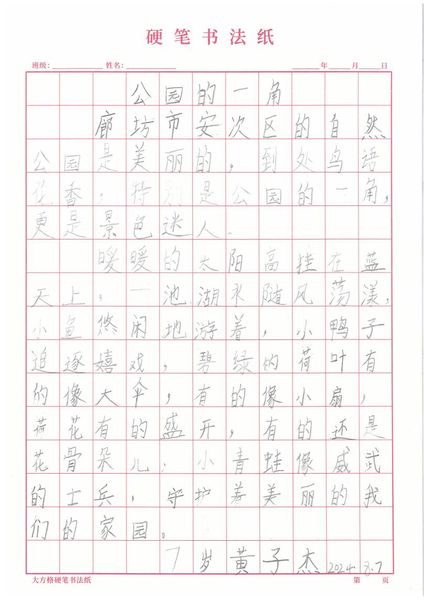 硬笔书法纸
班级：________ 姓名：________ ____年____月____日
公园的一角
廊坊市安次区的自然
公园是美丽的，到处鸟语
花香，特别是公园的一角，
更是景色迷人。
暖暖的太阳高挂在蓝
天上，一池湖水随风荡漾，
小鱼悠闲地游着，小鸭子
追逐嬉戏，碧绿的荷叶有
的像大伞，有的像小扇，
荷花有的盛开，有的还是
花骨朵儿，小青蛙像威武
的士兵，守护着美丽的我
们的家园。
7岁黄子杰2024.8.7
大方格硬笔书法纸 第 页